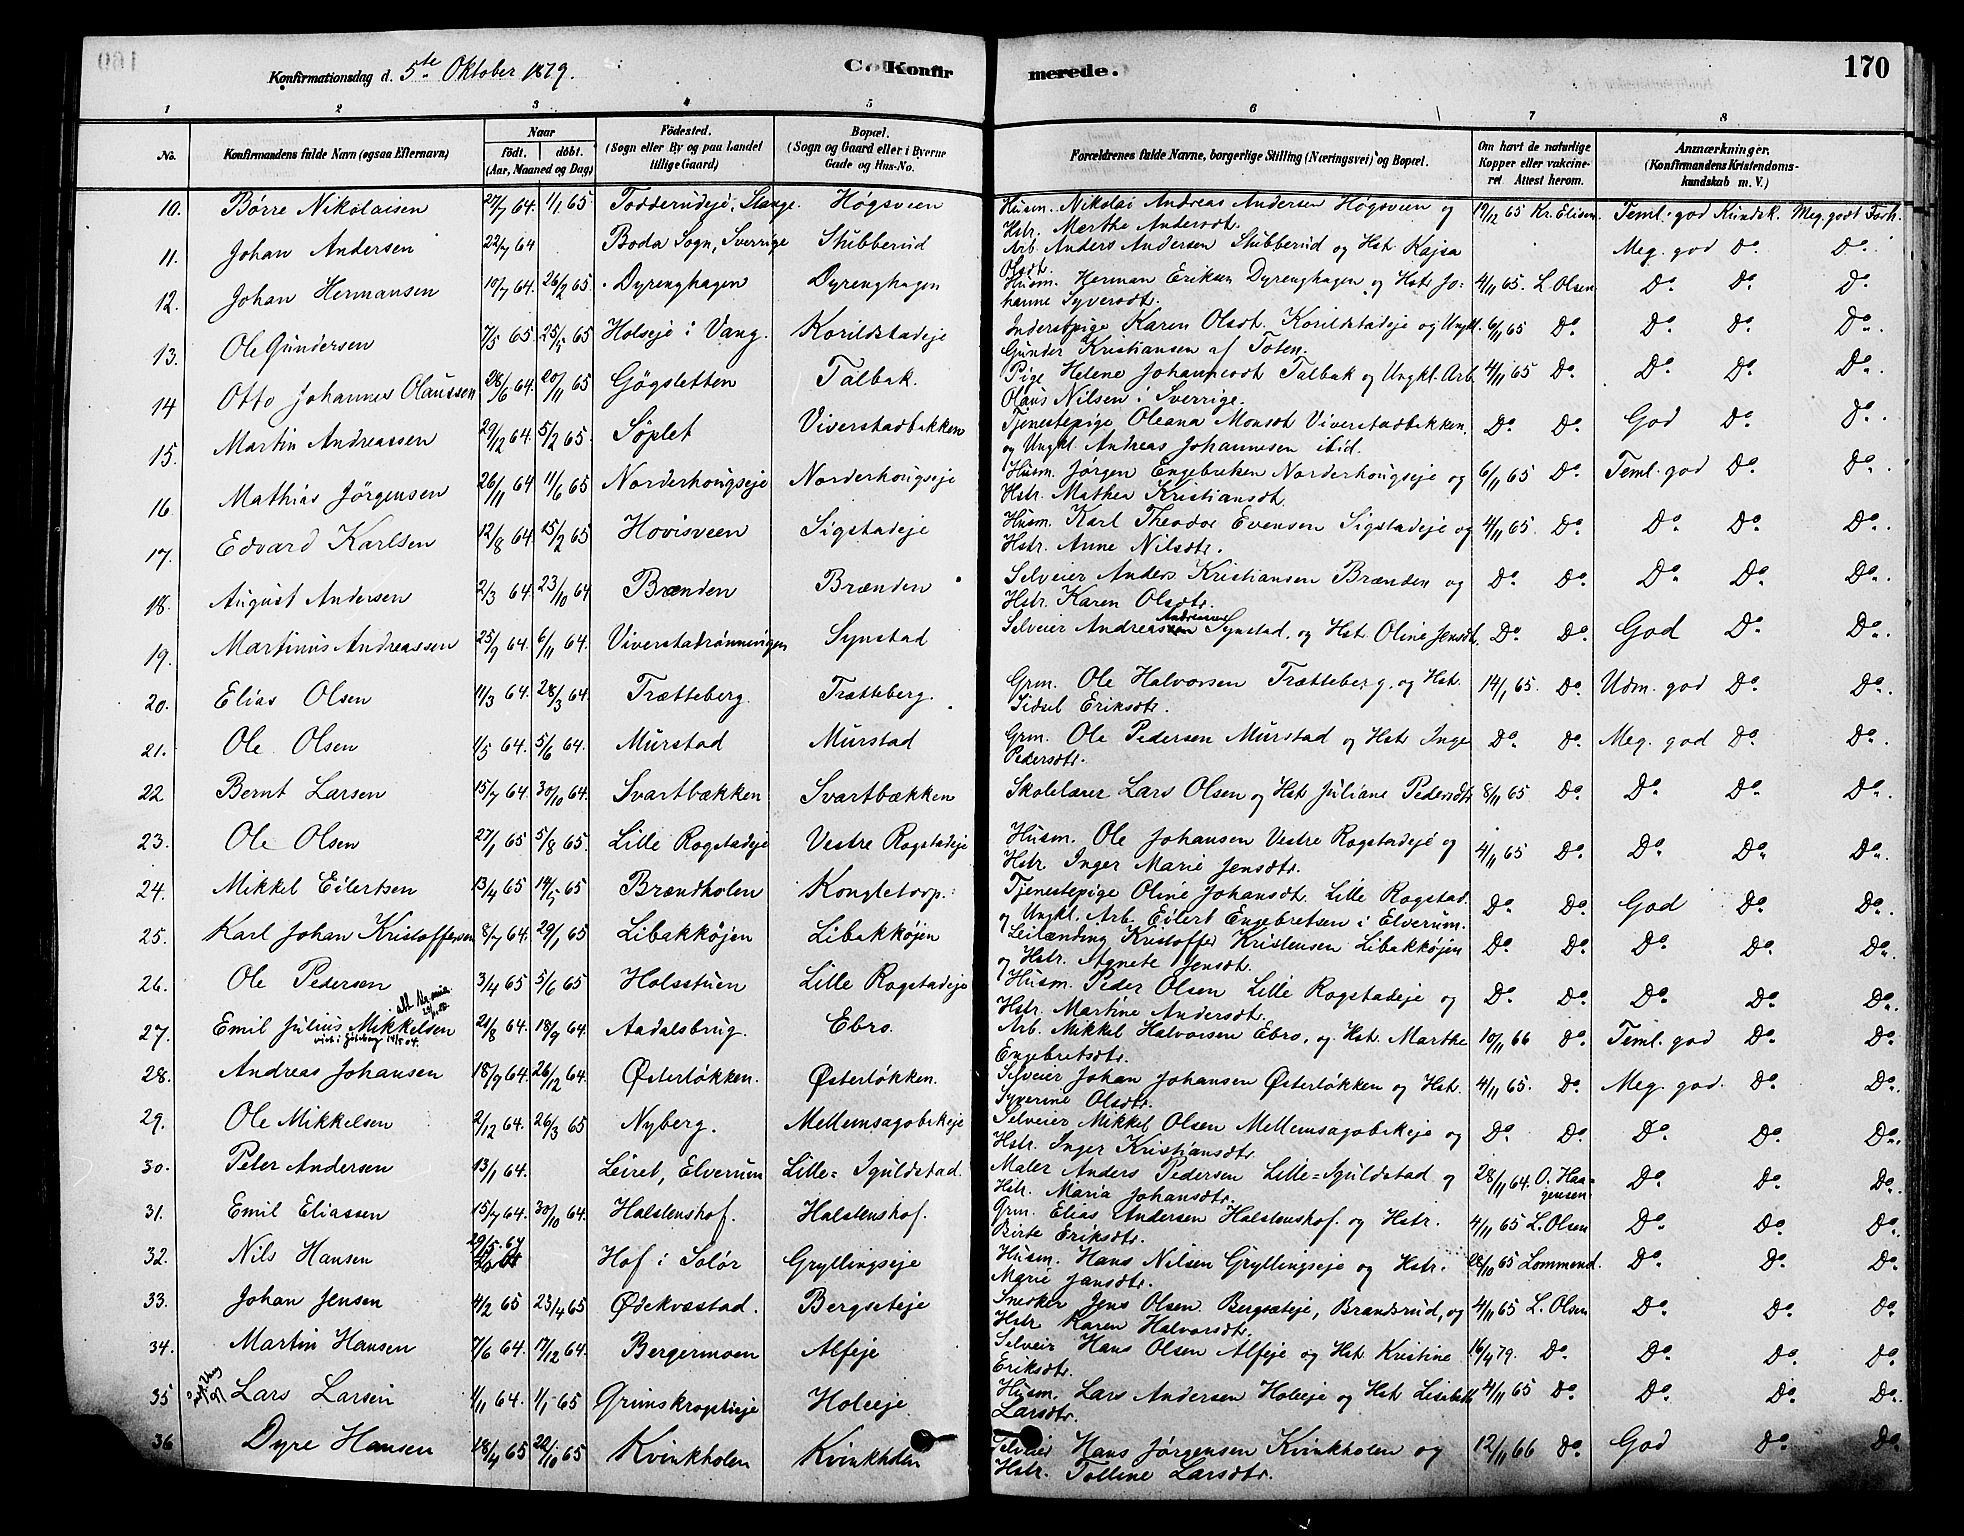 Konfirmationsdag d. 5te Oktober 1879.
Konfir
merede.
170
1 2 3 4 5 6 7 8
No. Konfirmandens fulde Navn (ogsaa Efternavn) Naar født. døbt. (Aar, Maaned og Dag) Födested. (Sogn eller By og paa Landet tillige Gaard) Bopæl. (Sogn og Gaard eller i Byerne Gade og Hus-No. Forældrenes fulde Navne, borgerlige Stilling (Næringsvei) og Bopæl. Om havt de naturlige Kopper eller vakcineret Attest herom. Anmærkninger. (Konfirmandens Kristendomskundskab m. V.)
10. Børre Nikolaisen 27/7 64. 1/1 65. Todderudeje, Stange. Høgsveen Husm. Nikolai Andreas Andersen Høgsveen og Hstr. Marthe Andersdt. 19/12 65 Kr. Elisen Teml. god Kundsk. Meg. godt Forh.
11. Johan Andersen 22/7 64 Boda Sogn, Sverrige Stubberud Arb. Anders Andersen Stubberud og Hst. Kajsa Olsdt. Meg. god Do. Do.
12. Johan Hermansen 10/7 64. 26/2 65. Dyrenghagen Dyrenghagen Husm. Herman Eriksen Dyrenghagen og Hstr. Johanne Syversdtr. 4/11 65. L. Olsen Do. Do. Do.
13. Ole Gundersen 7/5 65 25/5 65 Holseje i Vang. Korildstadeje Inderstpige Karen Olsdt. Korildstadeje og Ungkl. Gunder Kristiansen af Toten. 6/11 65 Do. Do. Do. Do.
14 Otto Johannes Olaussen 28/6 64. 20/11 65 Gögsletten Talbak. Pige Helene Johannesdt. Talbak og Ungkl. Arb. Olaus Nilsen i Sverrige. 4/11 65 Do. Do. Do. Do.
15. Martin Andreassen 29/12 64. 5/2 65. Söplet Viverstadbakken Tjenestepige Oleana Monsdt. Viverstadbakken. og Ungkl. Andreas Johannesen ibid. Do. Do. God Do. Do.
16. Mathias Jörgensen 26/11 64 11/6 65 Norderhougseje Norderhougseje Husm. Jörgen Engebretsen Norderhougseje og Hstr. Mathea Kristiansdt. 6/11 65 Do. Teml. god Do. Do.
17. Edvard Karlsen 12/8 64 15/2 65 Hovisveen Sigstadeje Husm. Karl Theodor Evensen Sigstadeje og Hstr. Anne Nilsdtr. 4/11 65. Do. Do. Do. Do.
18. August Andersen 2/3 64. 23/10 64 Brænden Brænden Selveier Anders Kristiansen Brænden og Hstr. Karen Olsdtr. Do. Do. Do. Do. Do.
19. Martinus Andreassen 25/9 64. 6/11 64. Viverstadrønningen Synstad Selveier Andreas Andreasen Synstad, og Hst. Oline Jensdt. Do. Do. God Do. Do.
20. Elias Olsen 11/3 64. 28/3 64. Trætteberg. Trætteberg. Grm. Ole Halvorsen Trætteberg, og Hst. Sidsel Eriksdtr. 14/1 65. Do. Udm. god Do. Do.
21. Ole Olsen 1/5 64. 5/6 64. Murstad Murstad Grm. Ole Pedersen Murstad og Hst. Inge Pedersdtr. Do. Do. Meg. god Do. Do.
22 Bernt Larsen 15/7 64. 30/10 64. Svartbækken Svartbækken Skolelærer Lars Olsen og Hst. Juliane Pedersdtr. 8/11 65 Do. Do. Do. Do.
23. Ole Olsen 27/1 65 5/8 65. Lille Rogstadeje Vestre Rogstadeje Husm. Ole Johansen Vestre Rogstadeje og Hstr. Inger Marie Jensdtr. 4/11 65 Do. Do. Do. Do.
24. Mikkel Eilertsen 13/4 65 14/5 65 Brændholen Kongletorp. Tjenestepige Oline Johansdt. Lille Rogstad. og Ungkl. Arb. Eilert Engebretsen i Elverum. Do. Do. God Do. Do.
25. Karl Johan Kristoffersen 8/7 64. 29/1 65 Libakköjen Libakköjen Leilænding Kristoffer Kristensen Libakköjen og Hstr. Agnete Jensdt. Do. Do. Do. Do. Do.
26. Ole Pedersen 3/4 65 5/6 65 Holsstuen Lille Rogstadeje Husm. Peder Olsen Lille Rogstadeje og Hstr. Martine Andersdtr. Do. Do. Do. Do. Do.
27. Emil Julius Mikkelsen 21/8 64. 18/9 64. Aadalsbrug. Ebro. Arb. Mikkel Halvorsen Ebro, og Hst. Marthe Engebretsdtr. 10/11 66 Do. Teml. god Do. Do.
28. Andreas Johansen 18/9 64. 26/12 64. Østerløkken. Østerløkken. Selveier Johan Johansen Østerløkken og Hst. Syverine Olsdtr. 4/11 65. Do. Meg. god. Do. Do.
29. Ole Mikkelsen 2/12 64. 26/3 65 Nyberg. Mellemsagobakeje Selveier Mikkel Olsen Mellemsagobakeje og Hstr. Inger Kristiansdtr. Do. Do. Do. Do. Do.
30. Peter Andersen 13/1 64. Leiret, Elverum Lille=Sguldstad. Maler Anders Pedersen Lille=Sguldstad og Hstr. Maria Johansdtr. 28/11 64. O. Haagensen Do. Do. Do.
31. Emil Eliassen 15/7 64. 30/10 64. Halstenshof. Halstenshof. Grm. Elias Andersen Halstenshof. og Hstr. Birte Eriksdtr. 4/11 65 L. Olsen Do. Do. Do.
32. Nils Hansen 29/5 64 Hof i Solör Gryllingseje Husm. Hans Nilsen Gryllingseje og Hstr. Marie Jansdtr. 28/10 65 Lommend. Do. Do. Do.
33. Johan Jensen 4/2 65 23/4 65 Ødekvæstad. Bergseteje Snedker Jens Olsen Bergsæteje, Brandsrud, og Hstr. Karen Halvorsdtr. 4/11 65 L. Olsen Do. Do. Do.
34. Martin Hansen 7/6 64. 17/12 64. Bergermoen Alfeje Selveier Hans Olsen Alfeje og Hst. Kristine Eriksdtr. 16/4 79. Do. Do. Do. Do.
35 Lars Larsen 1/11 64. 1/1 65 Grimskropteje Holeeje Husm. Lars Andersen Holeeje og Hst. Lisabeth Larsdtr. 4/11 65 Do. Do. Do. Do.
36 Dyre Hansen 18/4 65 22/10 65 Kvinkholen Kvinkholen Selveier Hans Jørgensen Kvinkholen og Hstr. Tolline Larsdtr. 12/11 66 Do. God Do. Do.